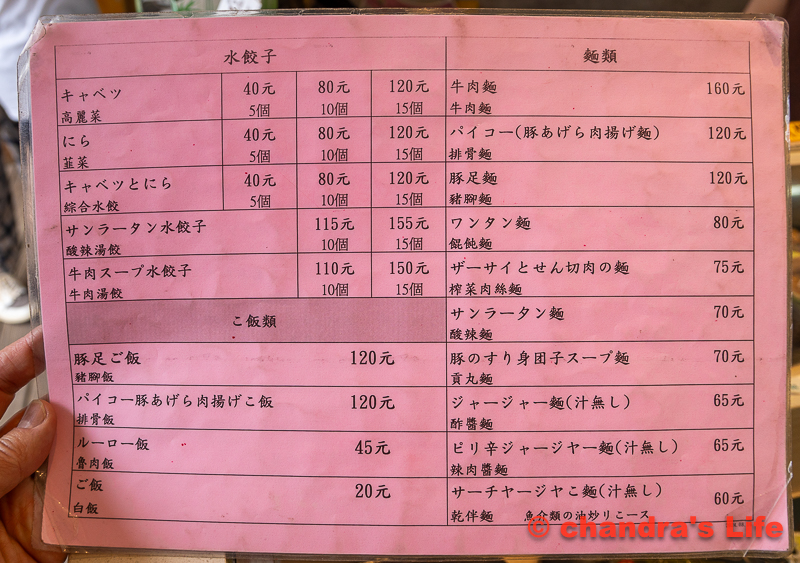 水餃子
キャベツ 40元 80元 120元
高麗菜 5個 10個 15個
にら 40元 80元 120元
韮菜 5個 10個 15個
キャベツとにら 40元 80元 120元
綜合水餃 5個 10個 15個
サンラータン水餃子 115元 155元
酸辣湯餃 10個 15個
牛肉スープ水餃子 110元 150元
牛肉湯餃 10個 15個
こ飯類
豚足ご飯 120元
豬腳飯
パイコー豚あげら肉揚げこ飯 120元
排骨飯
ルーロー飯 45元
魯肉飯
ご飯 20元
白飯
麵類
牛肉麵 160元
牛肉麵
パイコー(豚あげら肉揚げ麵) 120元
排骨麵
豚足麵 120元
豬腳麵
ワンタン麵 80元
餛飩麵
ザーサイとせん切肉の麵 75元
榨菜肉絲麵
サンラータン麵 70元
酸辣麵
豚のすり身団子スープ麵 70元
貢丸麵
ジャージャー麵(汁無し) 65元
酢醬麵
ピリ辛ジャージヤー麵(汁無し) 65元
辣肉醬麵
サーチヤージヤこ麵(汁無し) 60元
乾伴麵 魚介類の油炒りこース
© chandra's Life